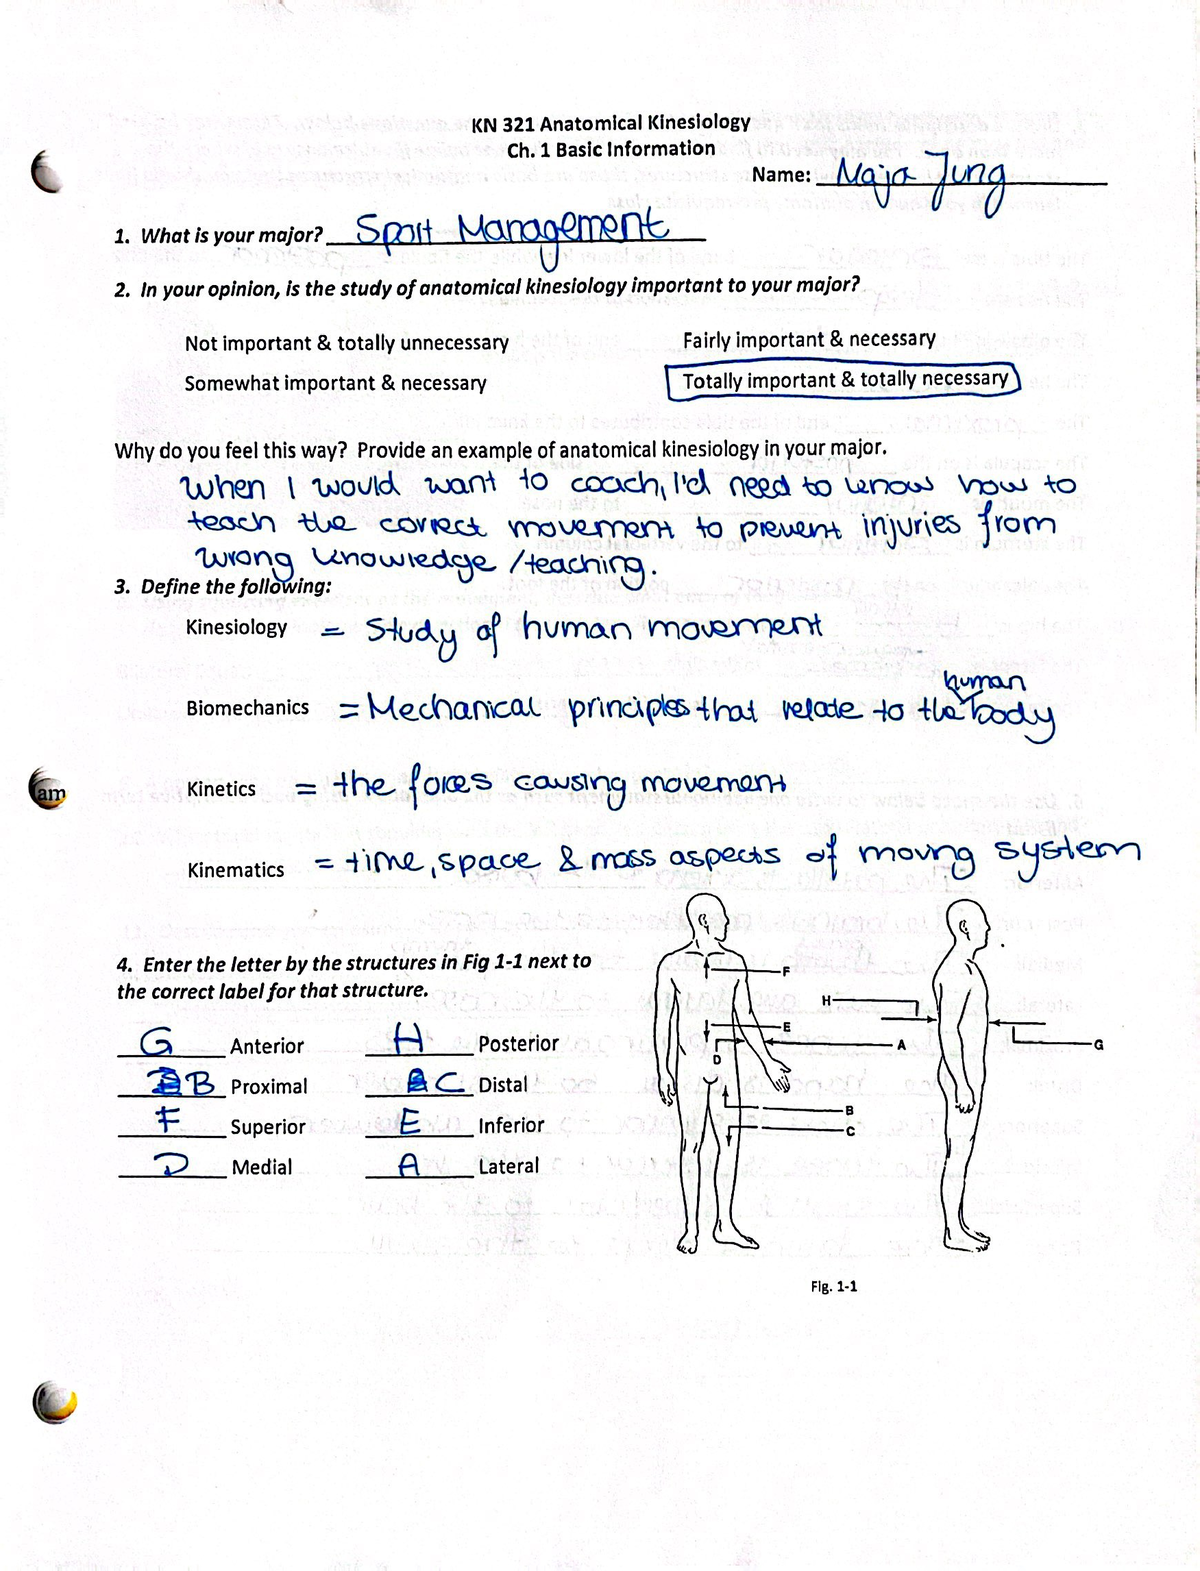 KN 321 Anatomical Kinesiology
Ch. 1 Basic Information
Name: Maja Jung
1. What is your major? Sport Management
2. In your opinion, is the study of anatomical kinesiology important to your major?
Not important & totally unnecessary Fairly important & necessary
Somewhat important & necessary Totally important & totally necessary
Why do you feel this way? Provide an example of anatomical kinesiology in your major.
When I would want to coach, I'd need to know how to
teach the correct movement to prevent injuries from
wrong knowledge / teaching.
3. Define the following:
Kinesiology = Study of human movement
human
Biomechanics = Mechanical principles that relate to the body
am
Kinetics = the forces causing movement
Kinematics = time, space & mass aspects of moving system
4. Enter the letter by the structures in Fig 1-1 next to
the correct label for that structure.
G Anterior H Posterior
B Proximal C Distal
F Superior E Inferior
D Medial A Lateral
F
H
E
A
G
D
B
C
Fig. 1-1